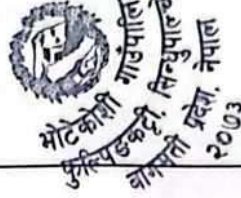 भोटेकोशी गाउँपालि
फुल्पिङकट्टी, सिन्धुपाल्च
बागमती प्रदेश, नेपाल
२०७३